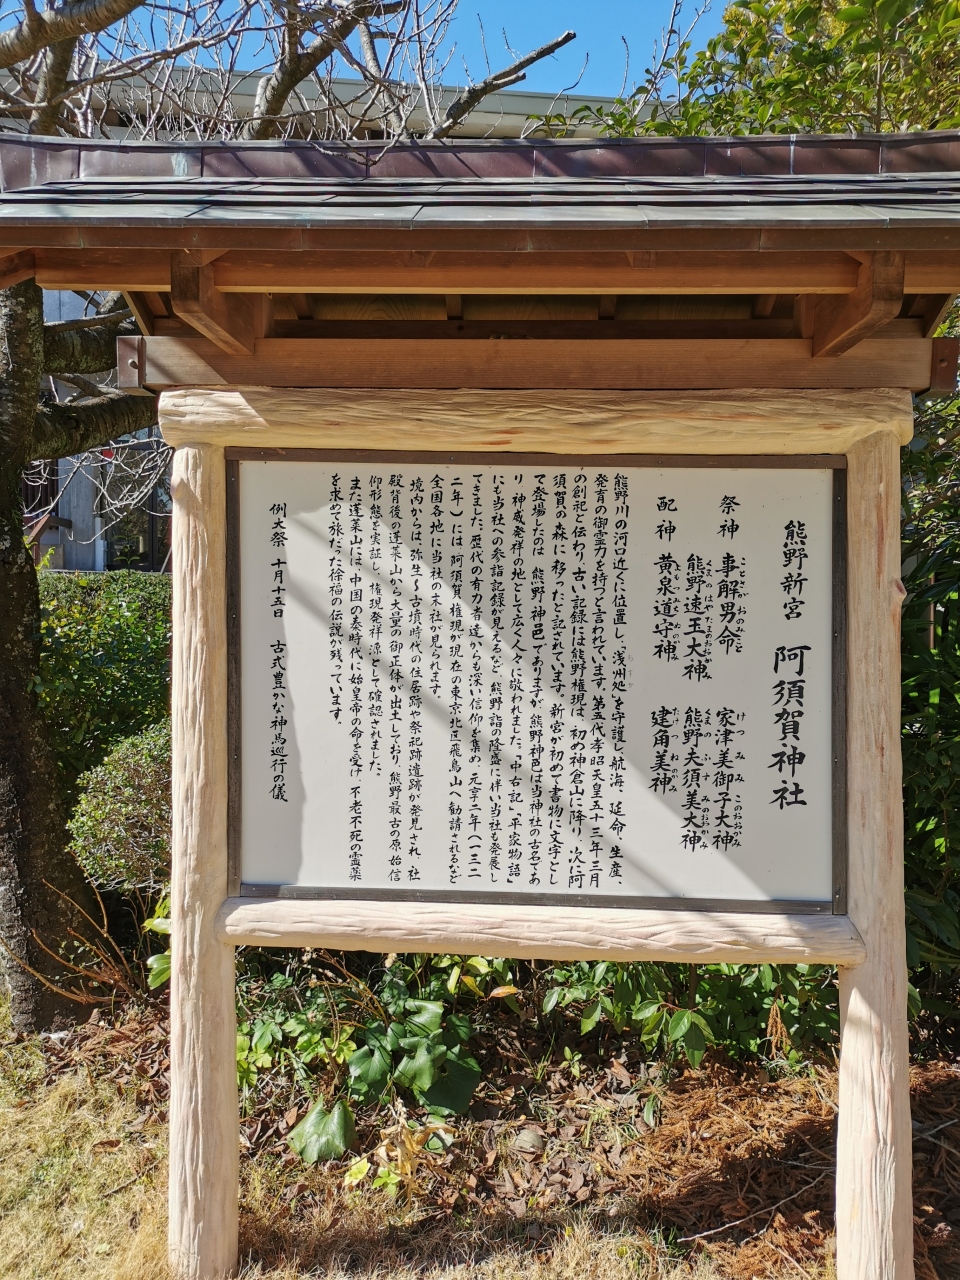 熊野新宮 阿須賀神社
祭神 事解男命 家津美御子大神
ことさかおのみこと けつみみこのおおかみ
熊野速玉大神 熊野夫須美大神
くまのはやたまのおおかみ くまのふすみのおおかみ
配神 黄泉道守神 建角美神
よもつみちもりのかみ たけつぬみのかみ
熊野川の河口近くに位置し、「浅州処」を守護し、航海、延命、生産、
発育の御霊力を持つと言われています。第五代孝昭天皇五十三年三月
の創祀と伝わり、古い記録には熊野権現は、初め神倉山に降り、次に阿
須賀の森に移ったと記されています。新宮が初めて書物に文字とし
て登場したのは「熊野神邑」でありますが、熊野神邑は当神社の古名であ
り、神威発祥の地として広く人々に敬われました。「中右記」「平家物語」
にも当社への参詣記録が見えるなど、熊野詣の隆盛に伴い当社も発展し
てきました。歴代の有力者達からも深い信仰を集め、元亨二年（一三二
二年）には阿須賀権現が現在の東京北区飛鳥山へ勧請されるなど
全国各地に当社の末社が見られます。
境内からは、弥生～古墳時代の住居跡や祭祀跡遺跡が発見され、社
殿背後の蓬莱山から大量の御正体が出土しており、熊野最古の原始信
仰形態を実証し、権現発祥源として確認されました。
また蓬莱山には、中国の秦時代に始皇帝の命を受け、不老不死の霊薬
を求めて旅だった徐福の伝説が残っています。
例大祭 十月十五日 古式豊かな神馬巡行の儀